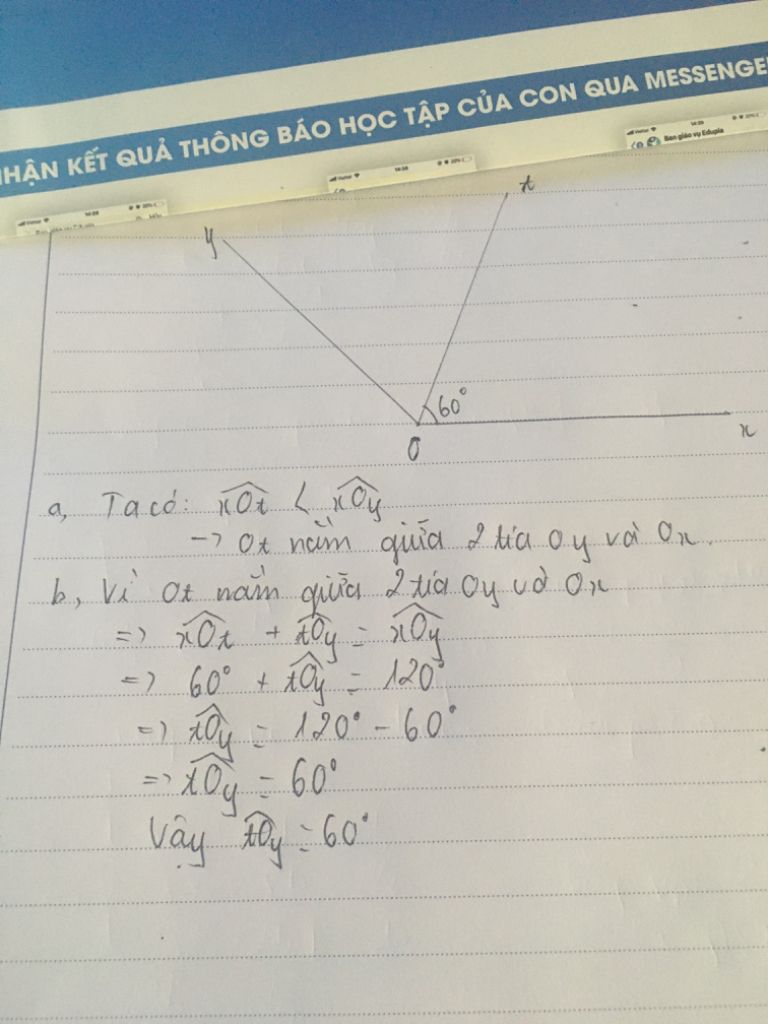 NHẬN KẾT QUẢ THÔNG BÁO HỌC TẬP CỦA CON QUA MESSENGE
Ban giáo vụ Edupia
y
t
60°
O
x
a, Ta có: xOt < xOy
-> Ot nằm giữa 2 tia Oy và Ox.
b, Vì Ot nằm giữa 2 tia Oy và Ox
=> xOt + tOy = xOy
=> 60° + tOy = 120°
=> tOy = 120° - 60°
=> tOy = 60°
Vậy tOy = 60°